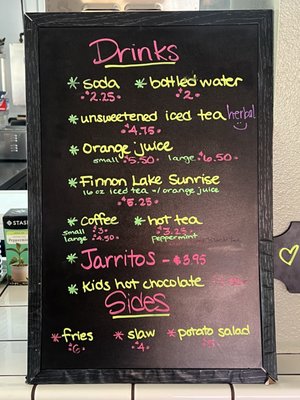 Drinks
* soda * bottled water
$2.25 $2
* unsweetened iced tea herbal
$4.75
* Orange juice
small $5.50 large $6.50
* Finnon Lake Sunrise
16 oz iced tea w/ orange juice
$5.25
* coffee * hot tea
small $3 $3.25
large $4.50 peppermint
* Jarritos - $3.95
* Kids hot chocolate
Sides
* fries * slaw * potato salad
$4